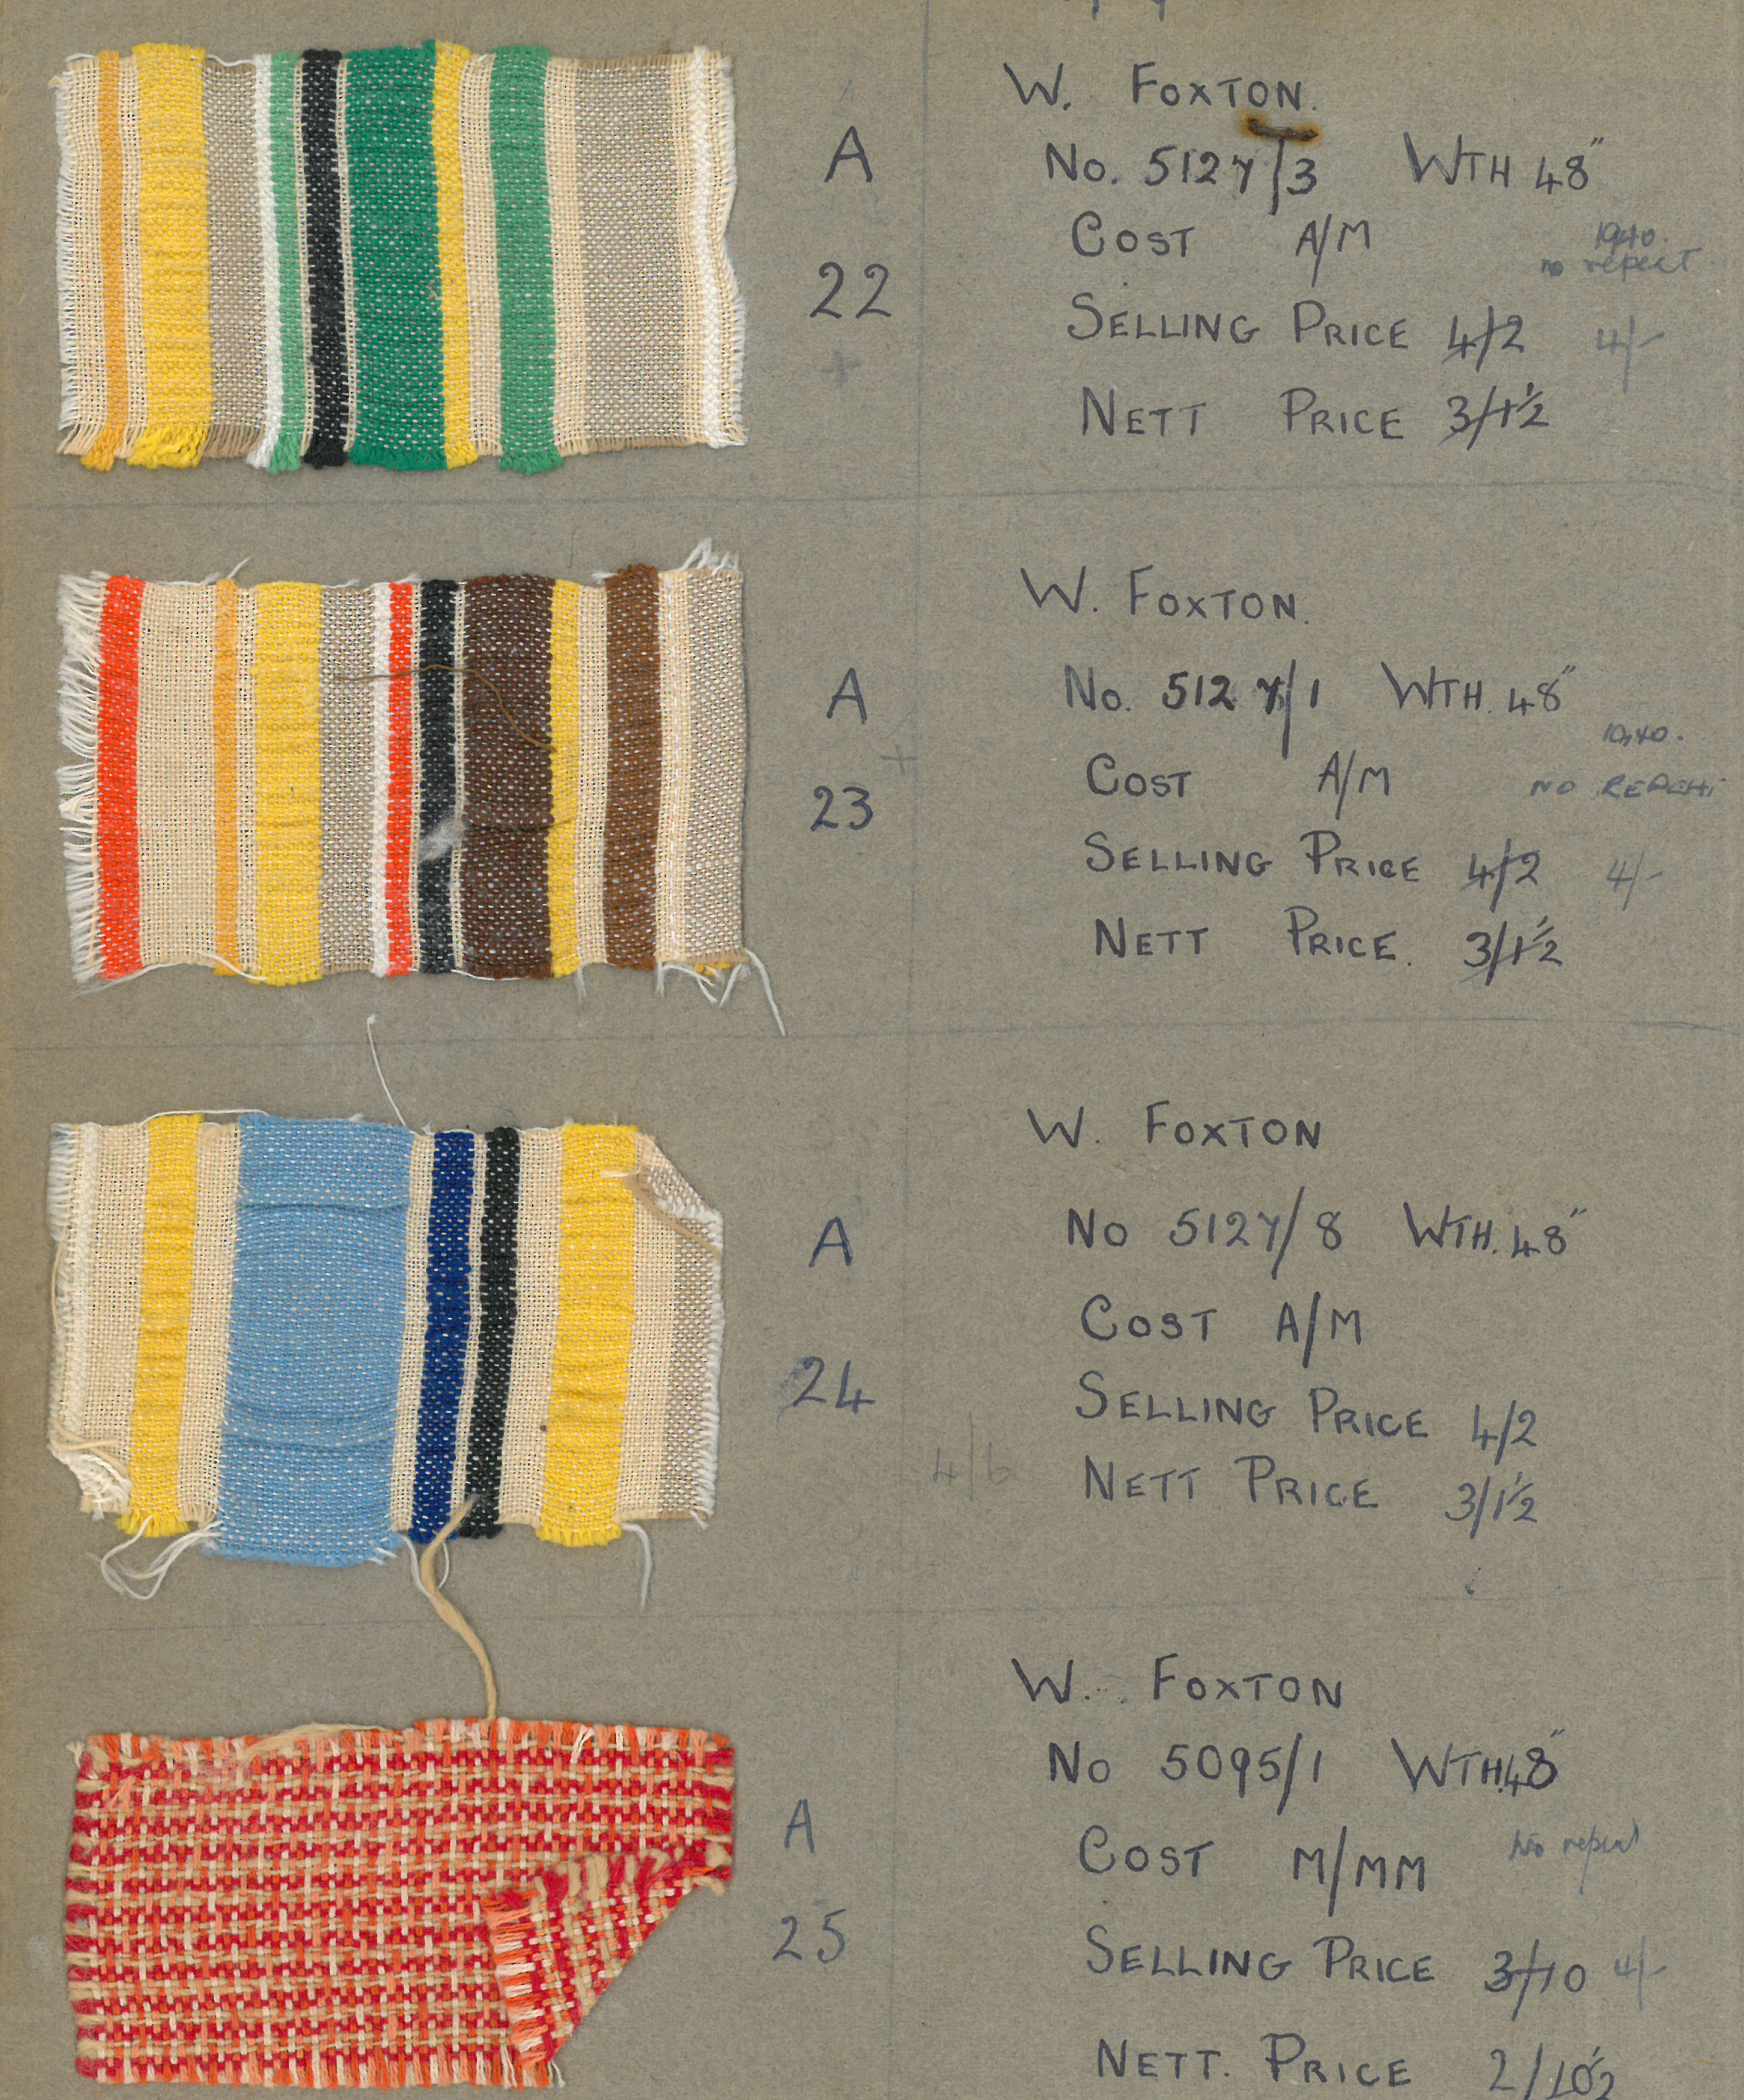 W. FOXTON.
A
No. 5127/3 WTH 48"
COST A/M
1940.
no repeat
22
SELLING PRICE 4/2 4/-
NETT PRICE 3/1½
W. FOXTON.
A
No. 5127/1 WTH. 48"
1940.
COST A/M NO REPEAT
23
SELLING PRICE 4/2 4/-
NETT PRICE. 3/1½
W. FOXTON
A
No 5127/8 WTH. 48"
COST A/M
24
SELLING PRICE 4/2
4/6
NETT PRICE 3/1½
W. FOXTON
No 5095/1 WTH.48"
A
COST M/MM No repeat
25
SELLING PRICE 3/10 4/-
NETT. PRICE 2/10½